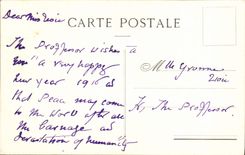 Dear Miss Zoir
CARTE POSTALE
The Professor wishes a
you a very happy
new year 1916 &
that Peace may come
to the world after all
the Carnage and
devastation of humanity
Mlle Yvonne
Zoir
fr, The Professor.